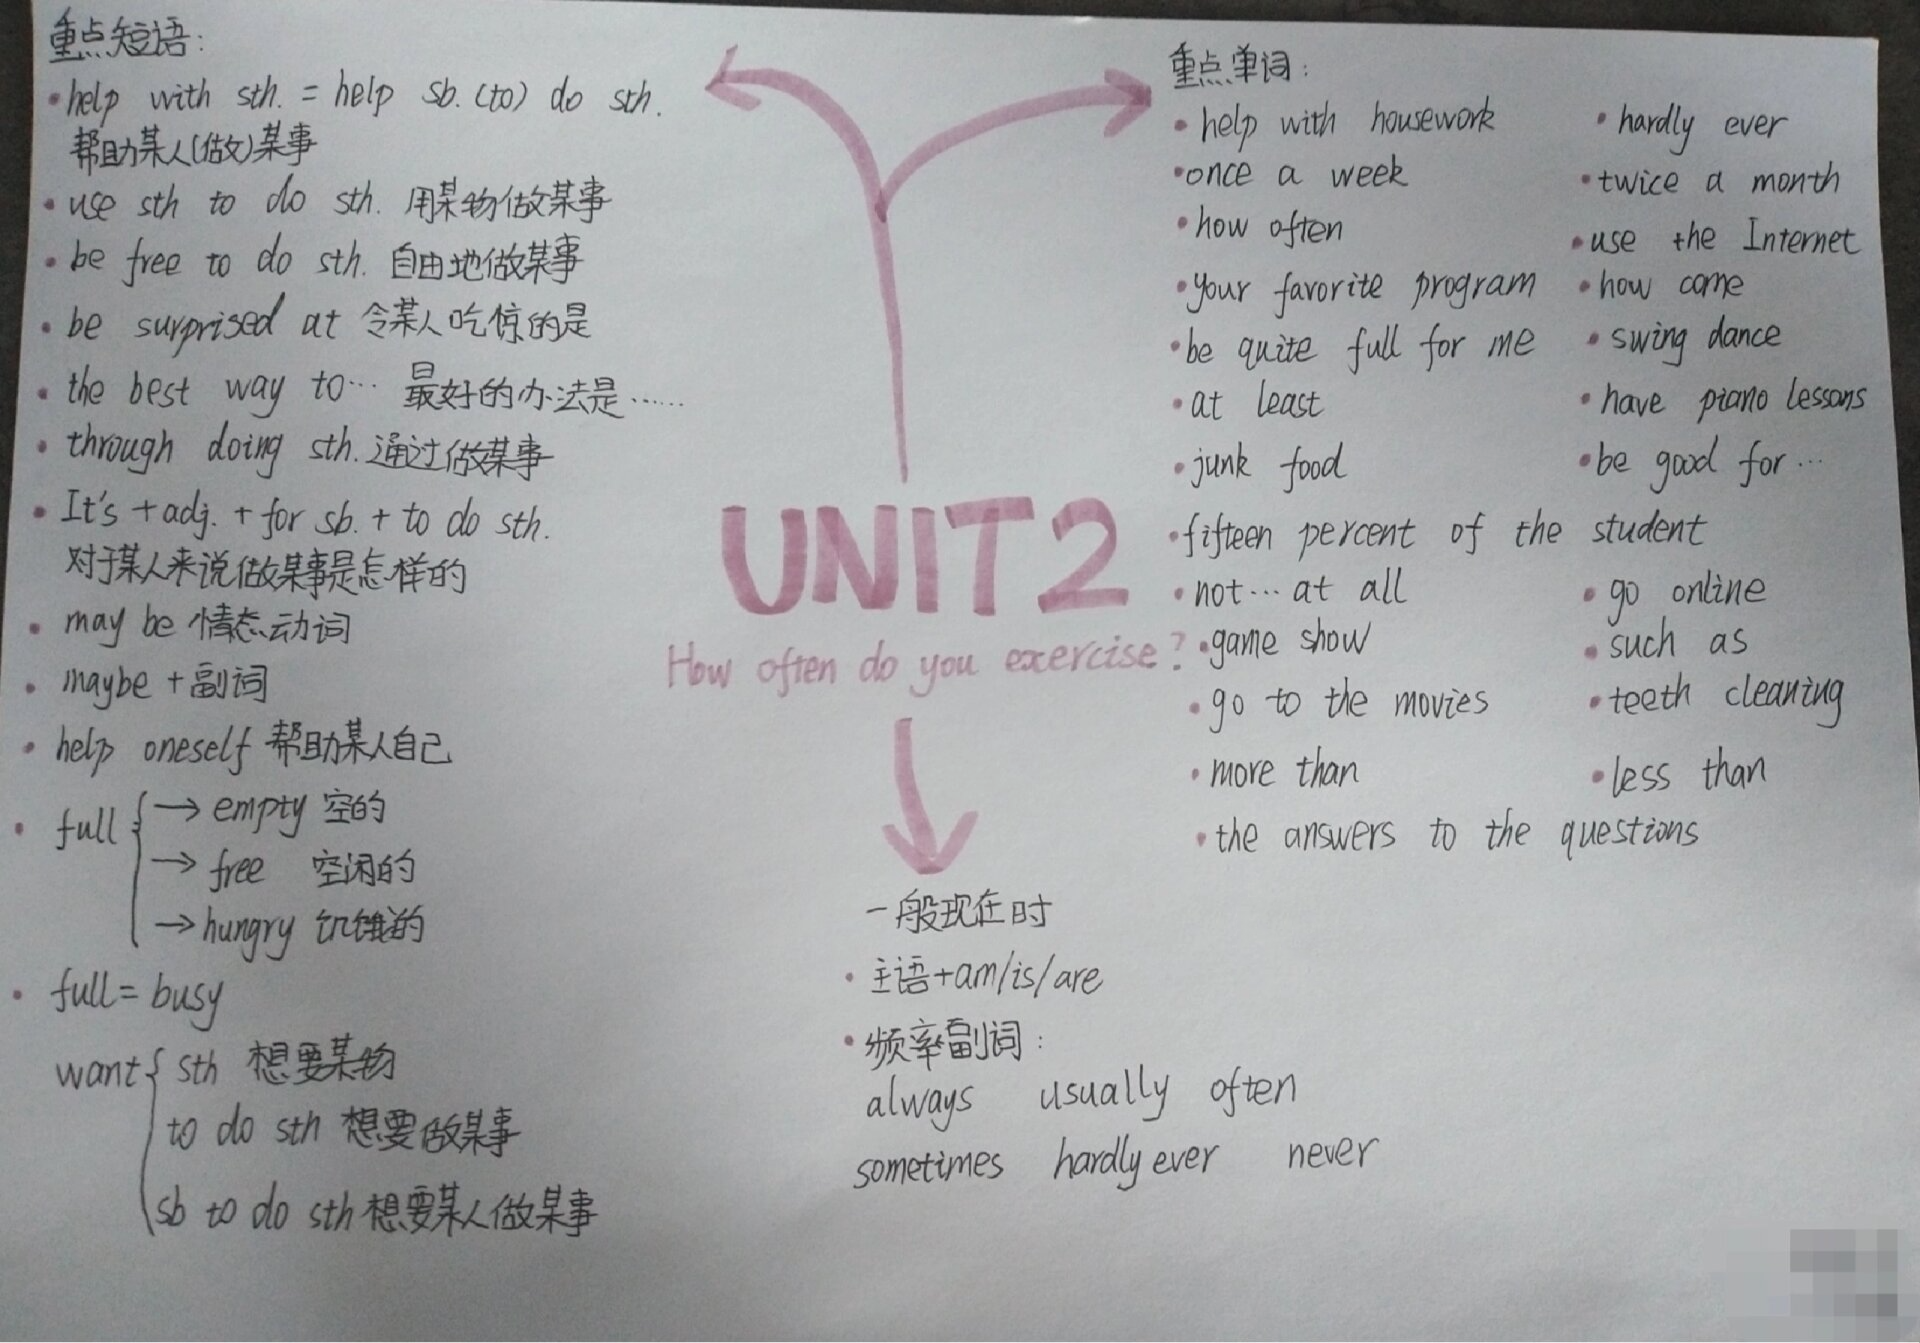 重点短语:
• help with sth. = help sb. (to) do sth.
帮助某人(做)某事
• use sth to do sth. 用某物做某事
• be free to do sth. 自由地做某事
• be surprised at 令某人吃惊的是
• the best way to… 最好的办法是……
• through doing sth. 通过做某事
• It's + adj. + for sb. + to do sth.
对于某人来说做某事是怎样的
• may be 情态动词
• maybe + 副词
• help oneself 帮助某人自己
• full { → empty 空的
→ free 空闲的
→ hungry 饥饿的
• full = busy
want { sth 想要某物
to do sth 想要做某事
sb to do sth 想要某人做某事
UNIT2
How often do you exercise?
重点单词:
• help with housework • hardly ever
• once a week • twice a month
• how often • use the Internet
• your favorite program • how come
• be quite full for me • swing dance
• at least • have piano lessons
• junk food • be good for…
• fifteen percent of the student
• not… at all • go online
• game show • such as
• go to the movies • teeth cleaning
• more than • less than
• the answers to the questions
一般现在时
• 主语+am/is/are
• 频率副词:
always usually often
sometimes hardly ever never